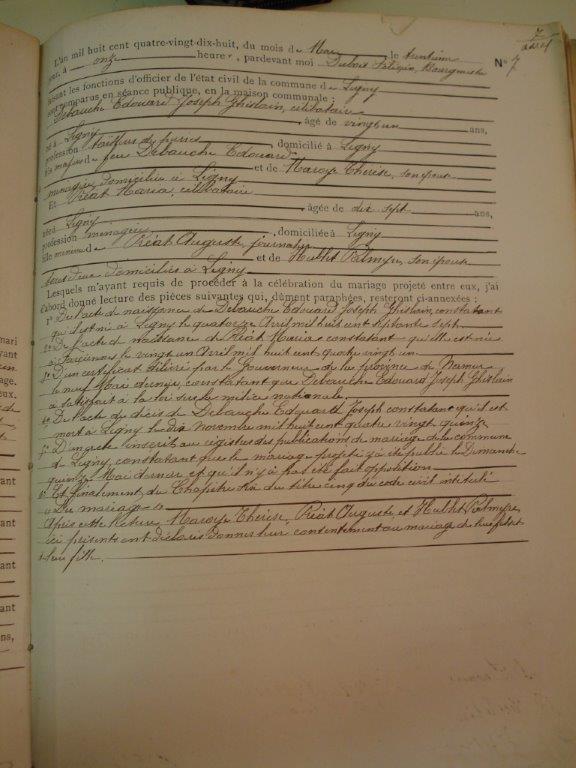 7
N° 7
L'an mil huit cent quatre-vingt-dix-huit, du mois de Mai le trentième
jour, à onze heures, pardevant moi Dubois Bourgmestre
faisant les fonctions d'officier de l'état civil de la commune de Ligny
sont comparus en séance publique, en la maison communale :
Debauche Edouard Joseph Ghislain, célibataire
âgé de vingt un ans,
né à Ligny
profession tailleur de pierres, domicilié à Ligny
fils majeur de feu Debauche Edouard et de Maroye Thérèse, son épouse
ménagère domiciliée à Ligny
Et Piéat Maria, célibataire
âgée de dix sept ans,
née à Ligny
profession ménagère, domiciliée à Ligny
fille mineure de Piéat Auguste, journalier et de Hublet Palmyre, son épouse
tous deux domiciliés à Ligny
Lesquels m'ayant requis de procéder à la célébration du mariage projeté entre eux, j'ai
d'abord donné lecture des pièces suivantes qui, dûment paraphées, resteront ci-annexées :
1° De l'acte de naissance de Debauche Edouard Joseph Ghislain, constatant
qu'il est né à Ligny le quatorze Avril mil huit cent septante sept
2° De l'acte de naissance de Piéat Maria constatant qu'elle est née
à Farciennes le vingt un Avril mil huit cent quatre vingt un
3° D'un certificat délivré par le Gouverneur de la province de Namur
le neuf Mai dernier, constatant que Debauche Edouard Joseph Ghislain
a satisfait à la loi sur la milice nationale.
4° De l'acte de décès de Debauche Edouard Joseph constatant qu'il est
mort à Ligny le dix novembre mil huit cent quatre vingt quinze
5° D'un acte inscrit au registre des publications de mariage de la commune
de Ligny, constatant que le mariage projeté a été publié le Dimanche
quinze Mai dernier et qu'il n'y a pas été fait opposition
6° Et finalement, du Chapitre six du titre cinq du code civil intitulé
« Du mariage »
Après cette lecture Maroye Thérèse, Piéat Auguste et Hublet Palmyre,
ici présents ont déclaré donner leur consentement au mariage de leurs fils et
leur fille.
mari
ant
ant
ant
ant
ant
ant
ns,